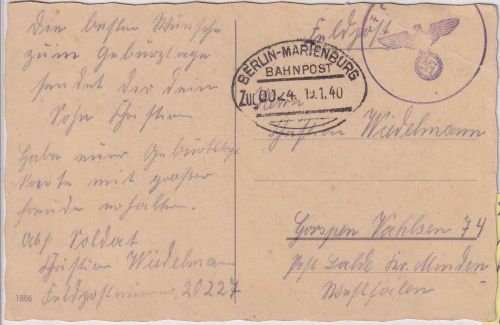 Die besten Wünsche
zum Geburtstage
sendet Dir dein
Sohn Christian
Habe eure Geburtstags
karte mit großer
Freude erhalten.
Abs Soldat
Christian Wiedelmann
Feldpostnummer 20227
1886
Feldpost
BERLIN-MARIENBURG
BAHNPOST
Zug 0024 19.1.40
Herrn
Christian Wiedelmann
Gorspen Vahlsen 74
Post Lahde Kr. Minden
Westfalen